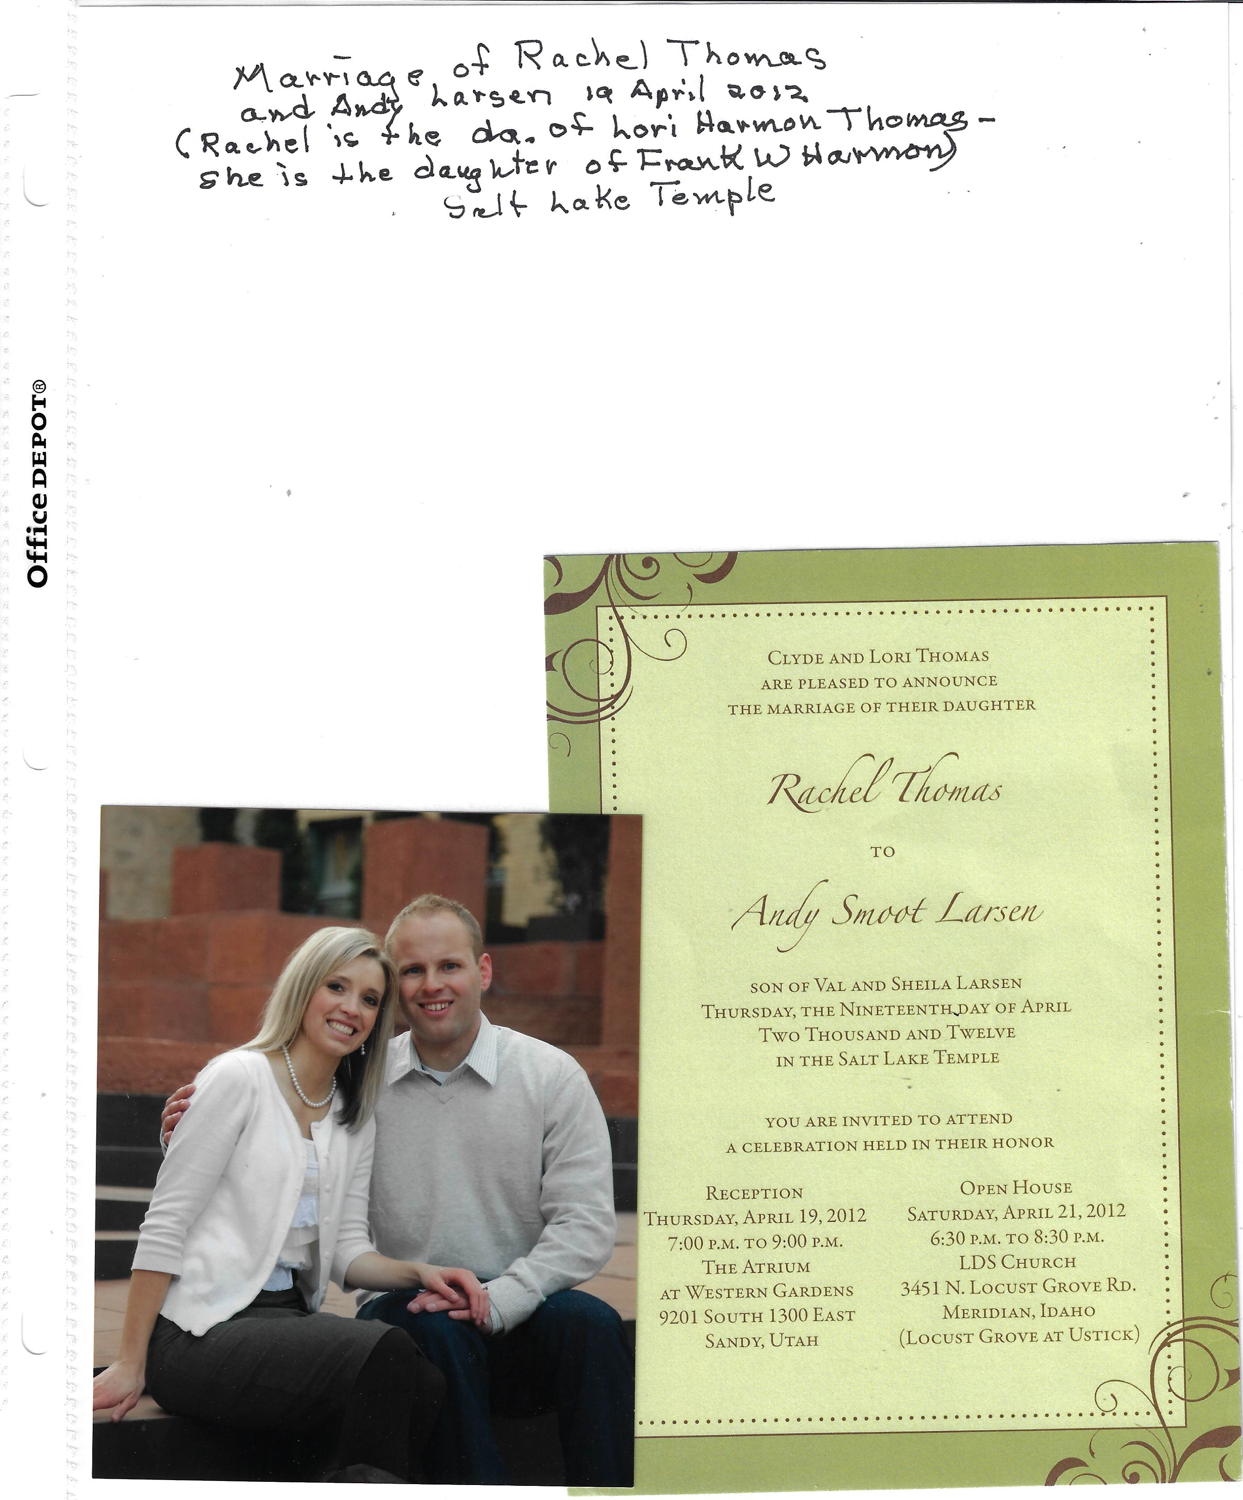 Marriage of Rachel Thomas
and Andy Larsen 19 April 2012
(Rachel is the da. of Lori Harmon Thomas -
she is the daughter of Frank W Harmon)
Salt Lake Temple
Office DEPOT®
CLYDE AND LORI THOMAS
ARE PLEASED TO ANNOUNCE
THE MARRIAGE OF THEIR DAUGHTER
Rachel Thomas
TO
Andy Smoot Larsen
SON OF VAL AND SHEILA LARSEN
THURSDAY, THE NINETEENTH DAY OF APRIL
TWO THOUSAND AND TWELVE
IN THE SALT LAKE TEMPLE
YOU ARE INVITED TO ATTEND
A CELEBRATION HELD IN THEIR HONOR
RECEPTION
THURSDAY, APRIL 19, 2012
7:00 P.M. TO 9:00 P.M.
THE ATRIUM
AT WESTERN GARDENS
9201 SOUTH 1300 EAST
SANDY, UTAH
OPEN HOUSE
SATURDAY, APRIL 21, 2012
6:30 P.M. TO 8:30 P.M.
LDS CHURCH
3451 N. LOCUST GROVE RD.
MERIDIAN, IDAHO
(LOCUST GROVE AT USTICK)